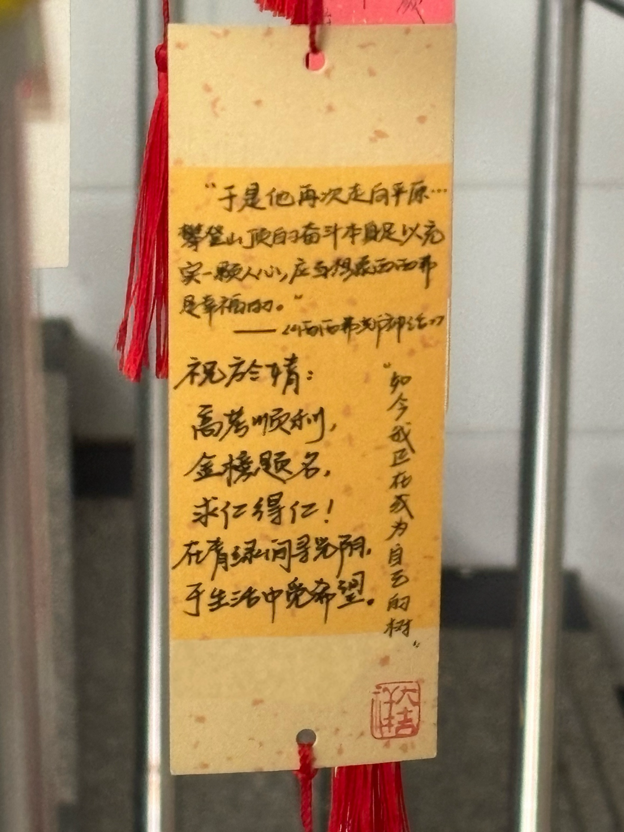 “于是他再次走向平原…
攀登山顶的奋斗本身足以充
实一颗人心，应当想象西西弗
是幸福的。”
——《西西弗斯神话》
祝於婧：
高考顺利，
金榜题名，
求仁得仁！
在青绿间寻光阴，
于生活中觅希望。
“如今我正在成为自己的树”
大吉